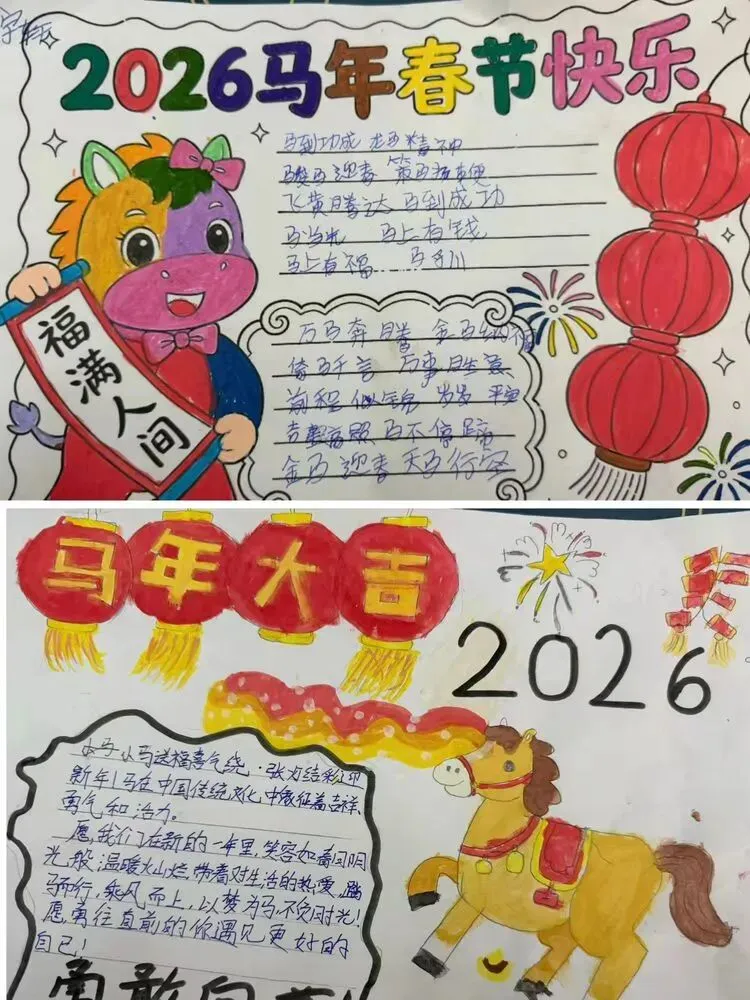 2026马年春节快乐
马到功成 龙马精神
骏马迎春 策马扬鞭
飞黄腾达 马到成功
马当先 马上有钱
马上有福
福满人间
万马奔腾
倚马千言 万事胜意
前程似锦 岁岁平安
吉星高照 马不停蹄
金马迎春 天马行空
马年大吉
2026
小马小马送福喜气绕,张灯结彩迎
新年!马在中国传统文化中象征着吉祥、
勇气和活力。
愿我们在新的一年里,笑容如春日阳
光般温暖灿烂,带着对生活的热爱,踏
马而行,乘风而上,以梦为马,不负时光!
愿勇往直前的你遇见更好的
自己!
勇敢向前